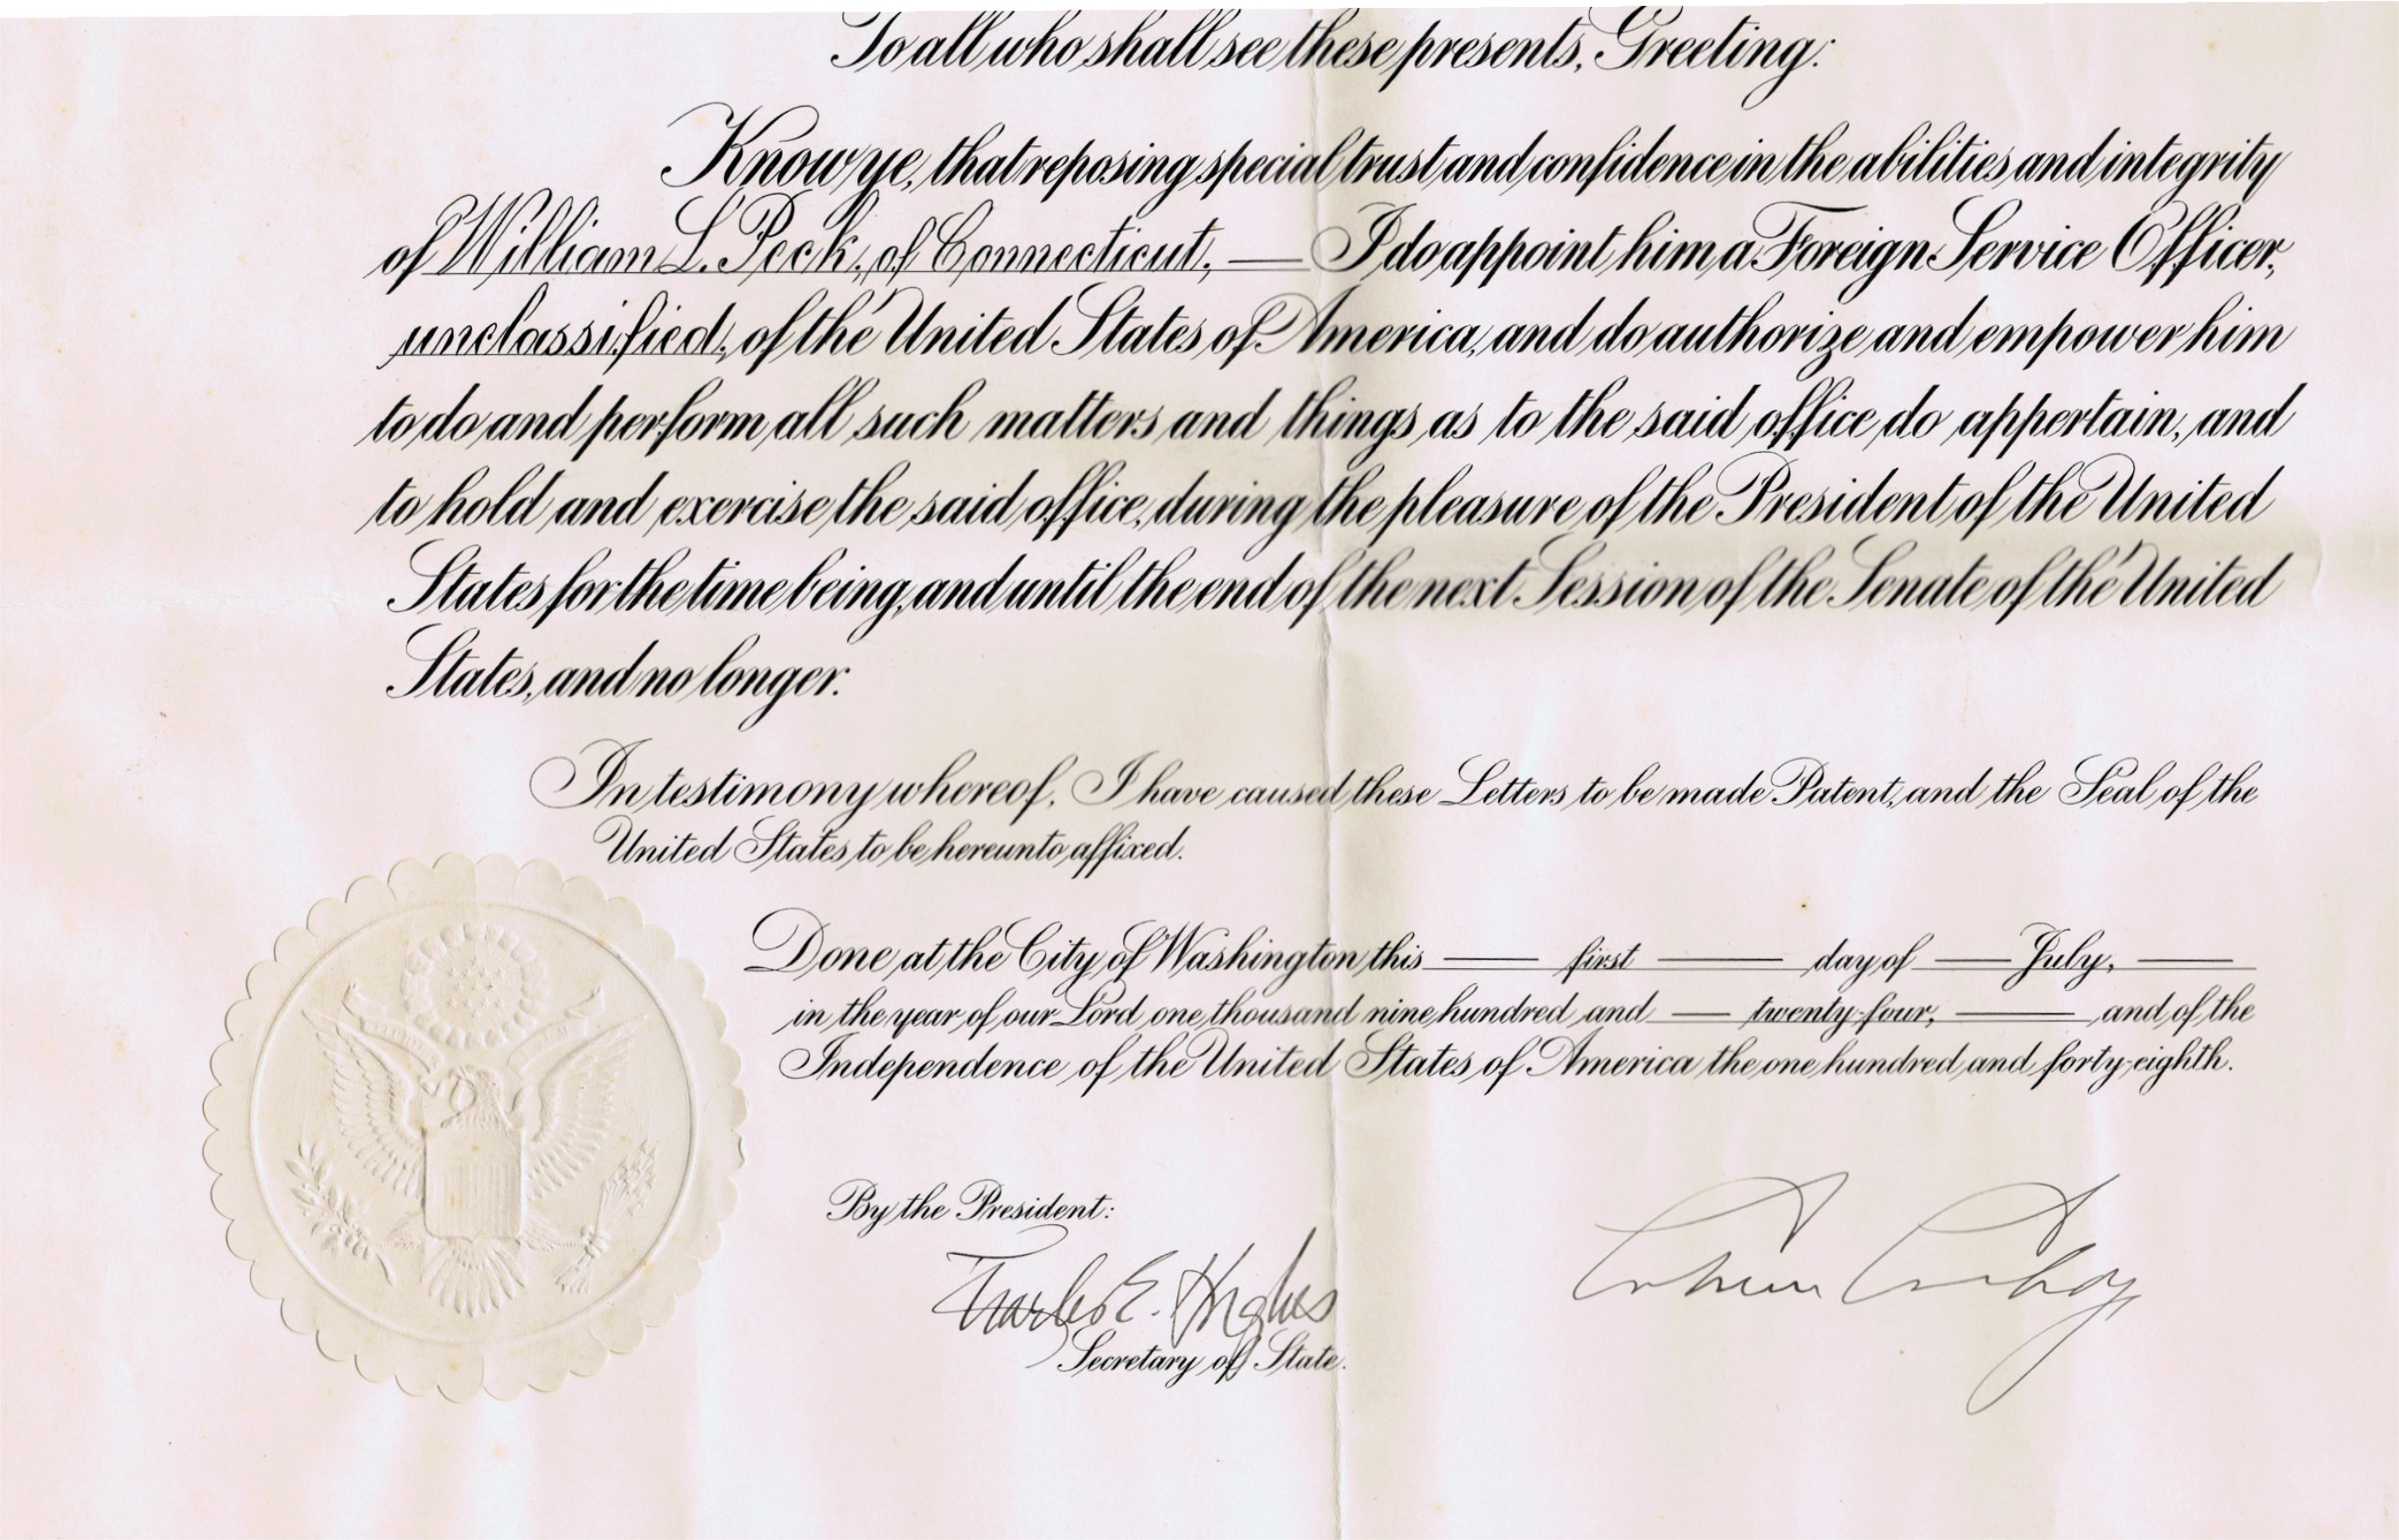 To all who shall see these presents, Greeting:
Know ye, that reposing special trust and confidence in the abilities and integrity
of William L. Peck, of Connecticut, — I do appoint him a Foreign Service Officer,
unclassified, of the United States of America, and do authorize and empower him
to do and perform all such matters and things as to the said office do appertain, and
to hold and exercise the said office, during the pleasure of the President of the United
States for the time being, and until the end of the next Session of the Senate of the United
States, and no longer.
In testimony whereof, I have caused these Letters to be made Patent, and the Seal of the
United States to be hereunto affixed.
Done at the City of Washington this — first — day of — July, —
in the year of our Lord one thousand nine hundred and — twenty-four, — and of the
Independence of the United States of America the one hundred and forty-eighth.
By the President:
Charles E. Hughes
Calvin Coolidge
Secretary of State.